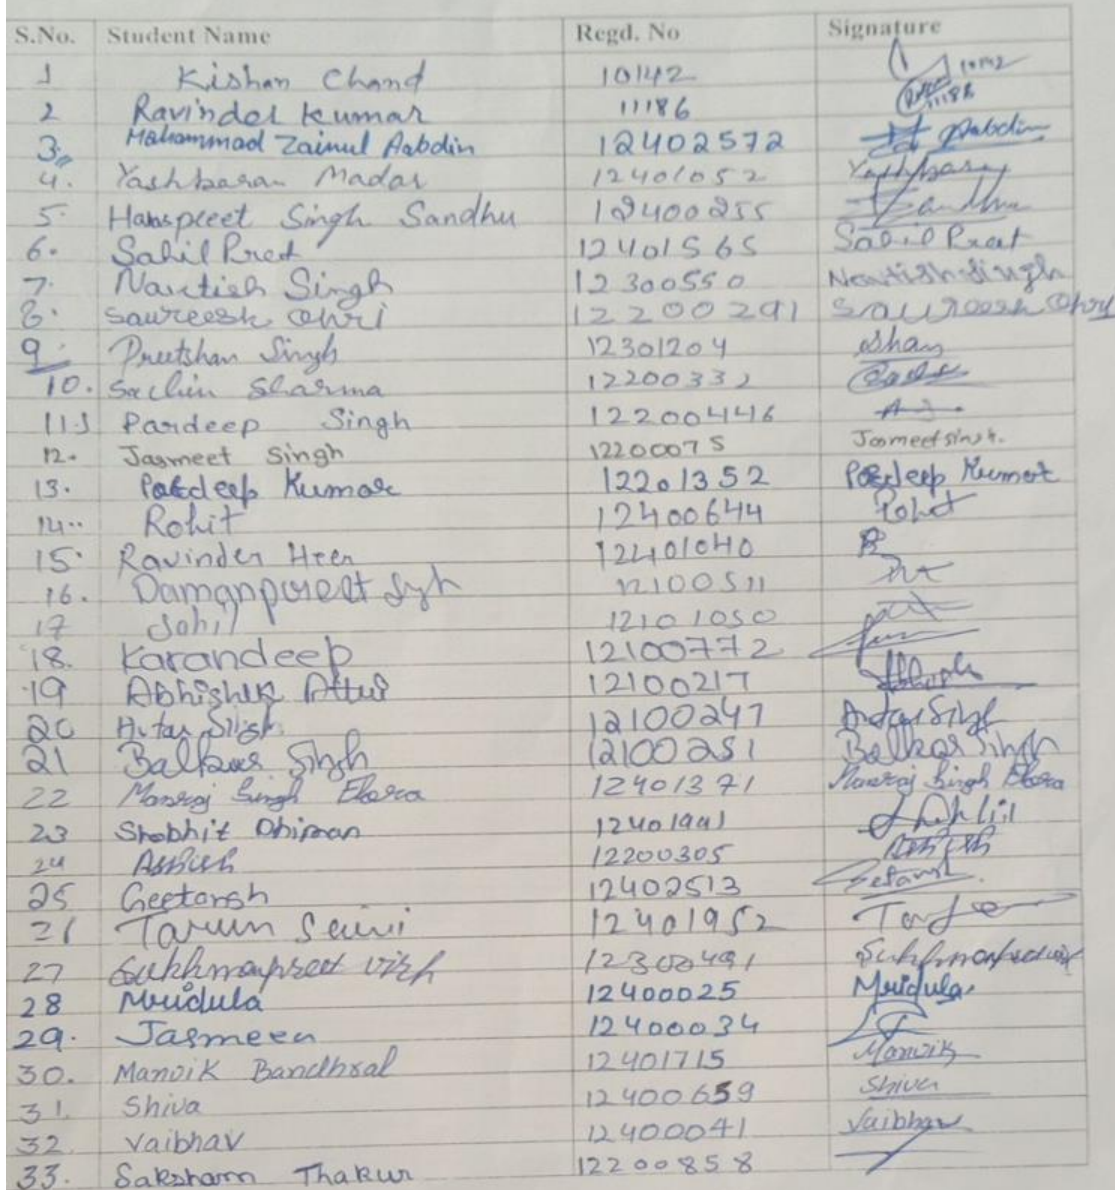 S.No. Student Name Regd. No Signature
1 Kishan Chand 10142 10142
2 Ravinder Kumar 11186 11186
3. Mohammad Zainul Aabdin 12402572 Aabdin
4. Yashbaran Madar 12401052 Yashbaran
5. Harspreet Singh Sandhu 12400255 Sandhu
6. Sahil Preet 12401565 Sahil Preet
7. Navtish Singh 12300550 Navtish Singh
8. Saureesh Ohri 12200291 Saureesh Ohri
9. Preetshan Singh 12301204 Shan
10. Sachin Sharma 1220033
11. Pardeep Singh 12200446
12. Jasmeet Singh 12200075 Jasmeet Singh.
13. Pardeep Kumar 12201352 Pardeep Kumar
14. Rohit 12400644 Rohit
15. Ravinder Heer 12401040
16. Damanpreet Sgh 12100511
17 Sahil 12101050
18. Karandeep 12100772
19 Abhishek Attri 12100217
20 Avtar Singh 12100247 Avtar Singh
21 Balkar Singh 12100251 Balkar Singh
22 Manraj Singh 12401371 Manraj Singh
23 Shobhit Dhiman 12401941
24 Ashish 12200305 Ashish
25 Geetansh 12402513 Getansh
26 Tarun Saini 12401952
27 Sukhmanpreet 12300491 Sukhmanpreet
28 Mridula 12400025 Mridula
29. Jasmeen 12400034
30. Manvik Bandhral 12401715 Manvik
31. Shiva 12400659 Shiva
32. Vaibhav 12400041 Vaibhav
33. Saksham Thakur 12200858